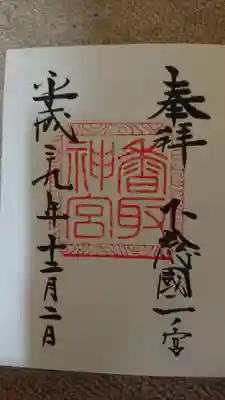 奉拝 下総國一ノ宮
香取
神宮
平成二九年十二月二日